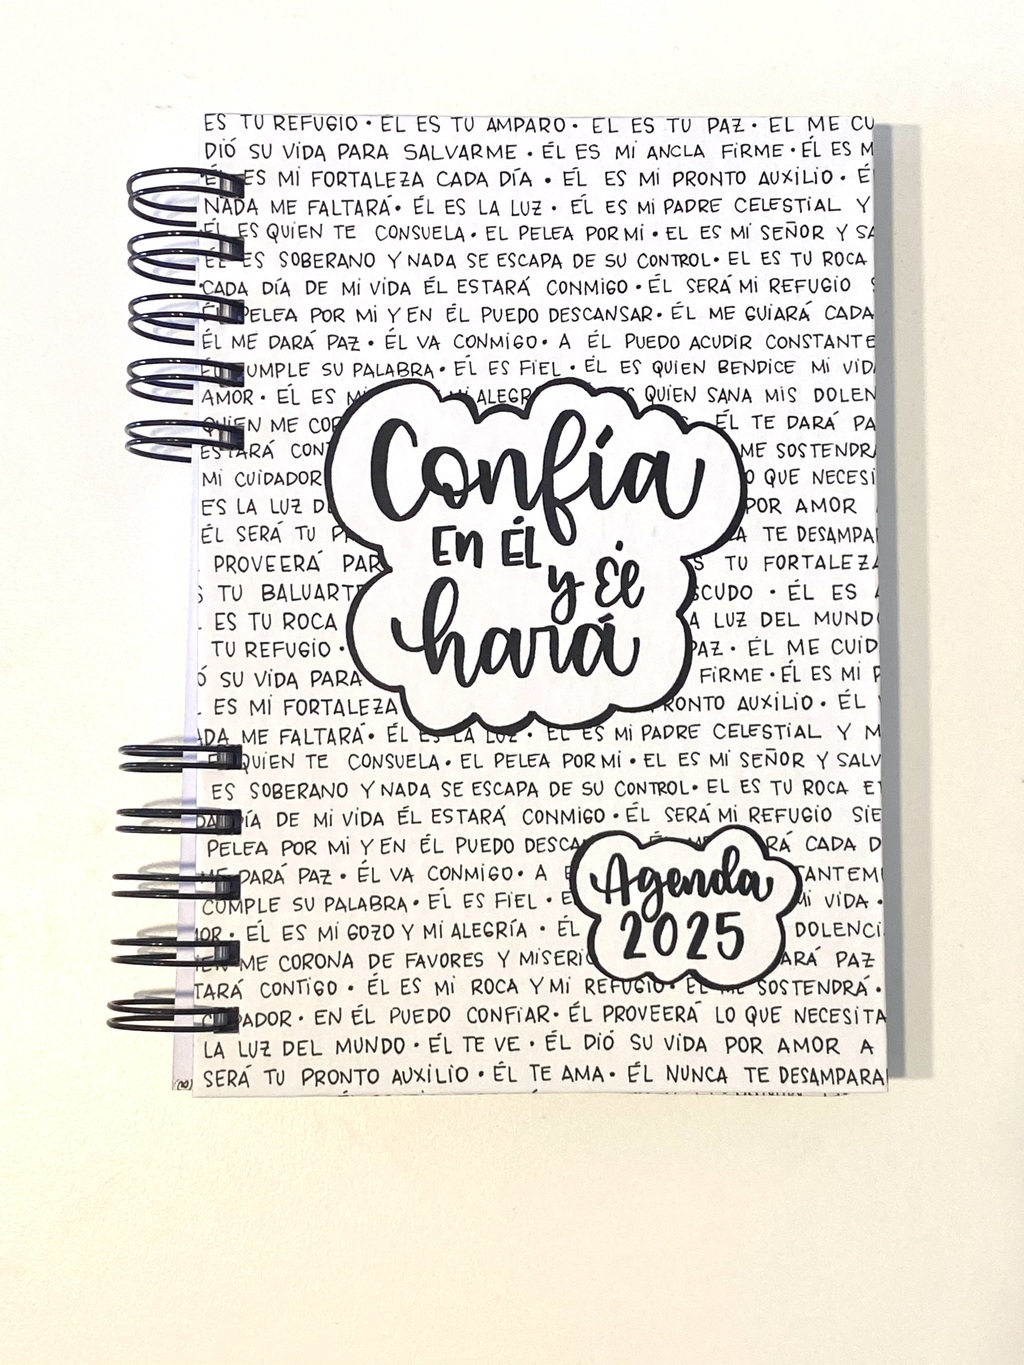 ES TU REFUGIO · ÉL ES TU AMPARO · EL ES TU PAZ · EL ME CU
DIÓ SU VIDA PARA SALVARME · ÉL ES MI ANCLA FIRME · ÉL ES M
ÉL ES MI FORTALEZA CADA DÍA · ÉL ES MI PRONTO AUXILIO · É
NADA ME FALTARÁ · ÉL ES LA LUZ · ÉL ES MI PADRE CELESTIAL Y
ÉL ES QUIEN TE CONSUELA · EL PELEA POR MI · EL ES MI SEÑOR Y SA
ÉL ES SOBERANO Y NADA SE ESCAPA DE SU CONTROL · EL ES TU ROCA
CADA DÍA DE MI VIDA ÉL ESTARÁ CONMIGO · ÉL SERÁ MI REFUGIO
ÉL PELEA POR MI Y EN ÉL PUEDO DESCANSAR · ÉL ME GUIARÁ CADA
ÉL ME DARÁ PAZ · ÉL VA CONMIGO · A ÉL PUEDO ACUDIR CONSTANTE
ÉL CUMPLE SU PALABRA · ÉL ES FIEL · ÉL ES QUIEN BENDICE MI VID
AMOR · ÉL ES M MI ALEGR ES QUIEN SANA MIS DOLEN
QUIEN ME COR ÉL TE DARÁ PA
ESTARÁ CONT ME SOSTENDRÁ
MI CUIDADOR O QUE NECESI
ES LA LUZ D POR AMOR
ÉL SERÁ TU P A TE DESAMPA
PROVEERÁ PAR S TU FORTALEZA
S TU BALUARTE SCUDO · ÉL ES
ES TU ROCA A LUZ DEL MUNDO
TU REFUGIO · PAZ · ÉL ME CUID
Ó SU VIDA PARA FIRME · ÉL ES MI P
ES MI FORTALEZA RONTO AUXILIO · ÉL
Confía
EN ÉL
y Él
hará
ADA ME FALTARÁ · ÉL ES LA LUZ · EL ES MI PADRE CELESTIAL Y M
QUIEN TE CONSUELA · EL PELEA POR MI · EL ES MI SEÑOR Y SALV
ES SOBERANO Y NADA SE ESCAPA DE SU CONTROL · EL ES TU ROCA E
DA DÍA DE MI VIDA ÉL ESTARÁ CONMIGO · ÉL SERÁ MI REFUGIO SIE
PELEA POR MI Y EN ÉL PUEDO DESCA ÉL ME RÁ CADA D
ME DARÁ PAZ · ÉL VA CONMIGO · A É TANTEM
CUMPLE SU PALABRA · ÉL ES FIEL · E MI VIDA ·
MOR · ÉL ES MI GOZO Y MI ALEGRÍA · ÉL DOLENCI
IEN ME CORONA DE FAVORES Y MISERIC ARÁ PAZ
Agenda
2025
TARÁ CONTIGO · ÉL ES MI ROCA Y MI REFUGIO · EL ME SOSTENDRÁ ·
CUIDADOR · EN ÉL PUEDO CONFIAR · ÉL PROVEERÁ LO QUE NECESITA
LA LUZ DEL MUNDO · ÉL TE VE · ÉL DIÓ SU VIDA POR AMOR A
SERÁ TU PRONTO AUXILIO · ÉL TE AMA · ÉL NUNCA TE DESAMPARA